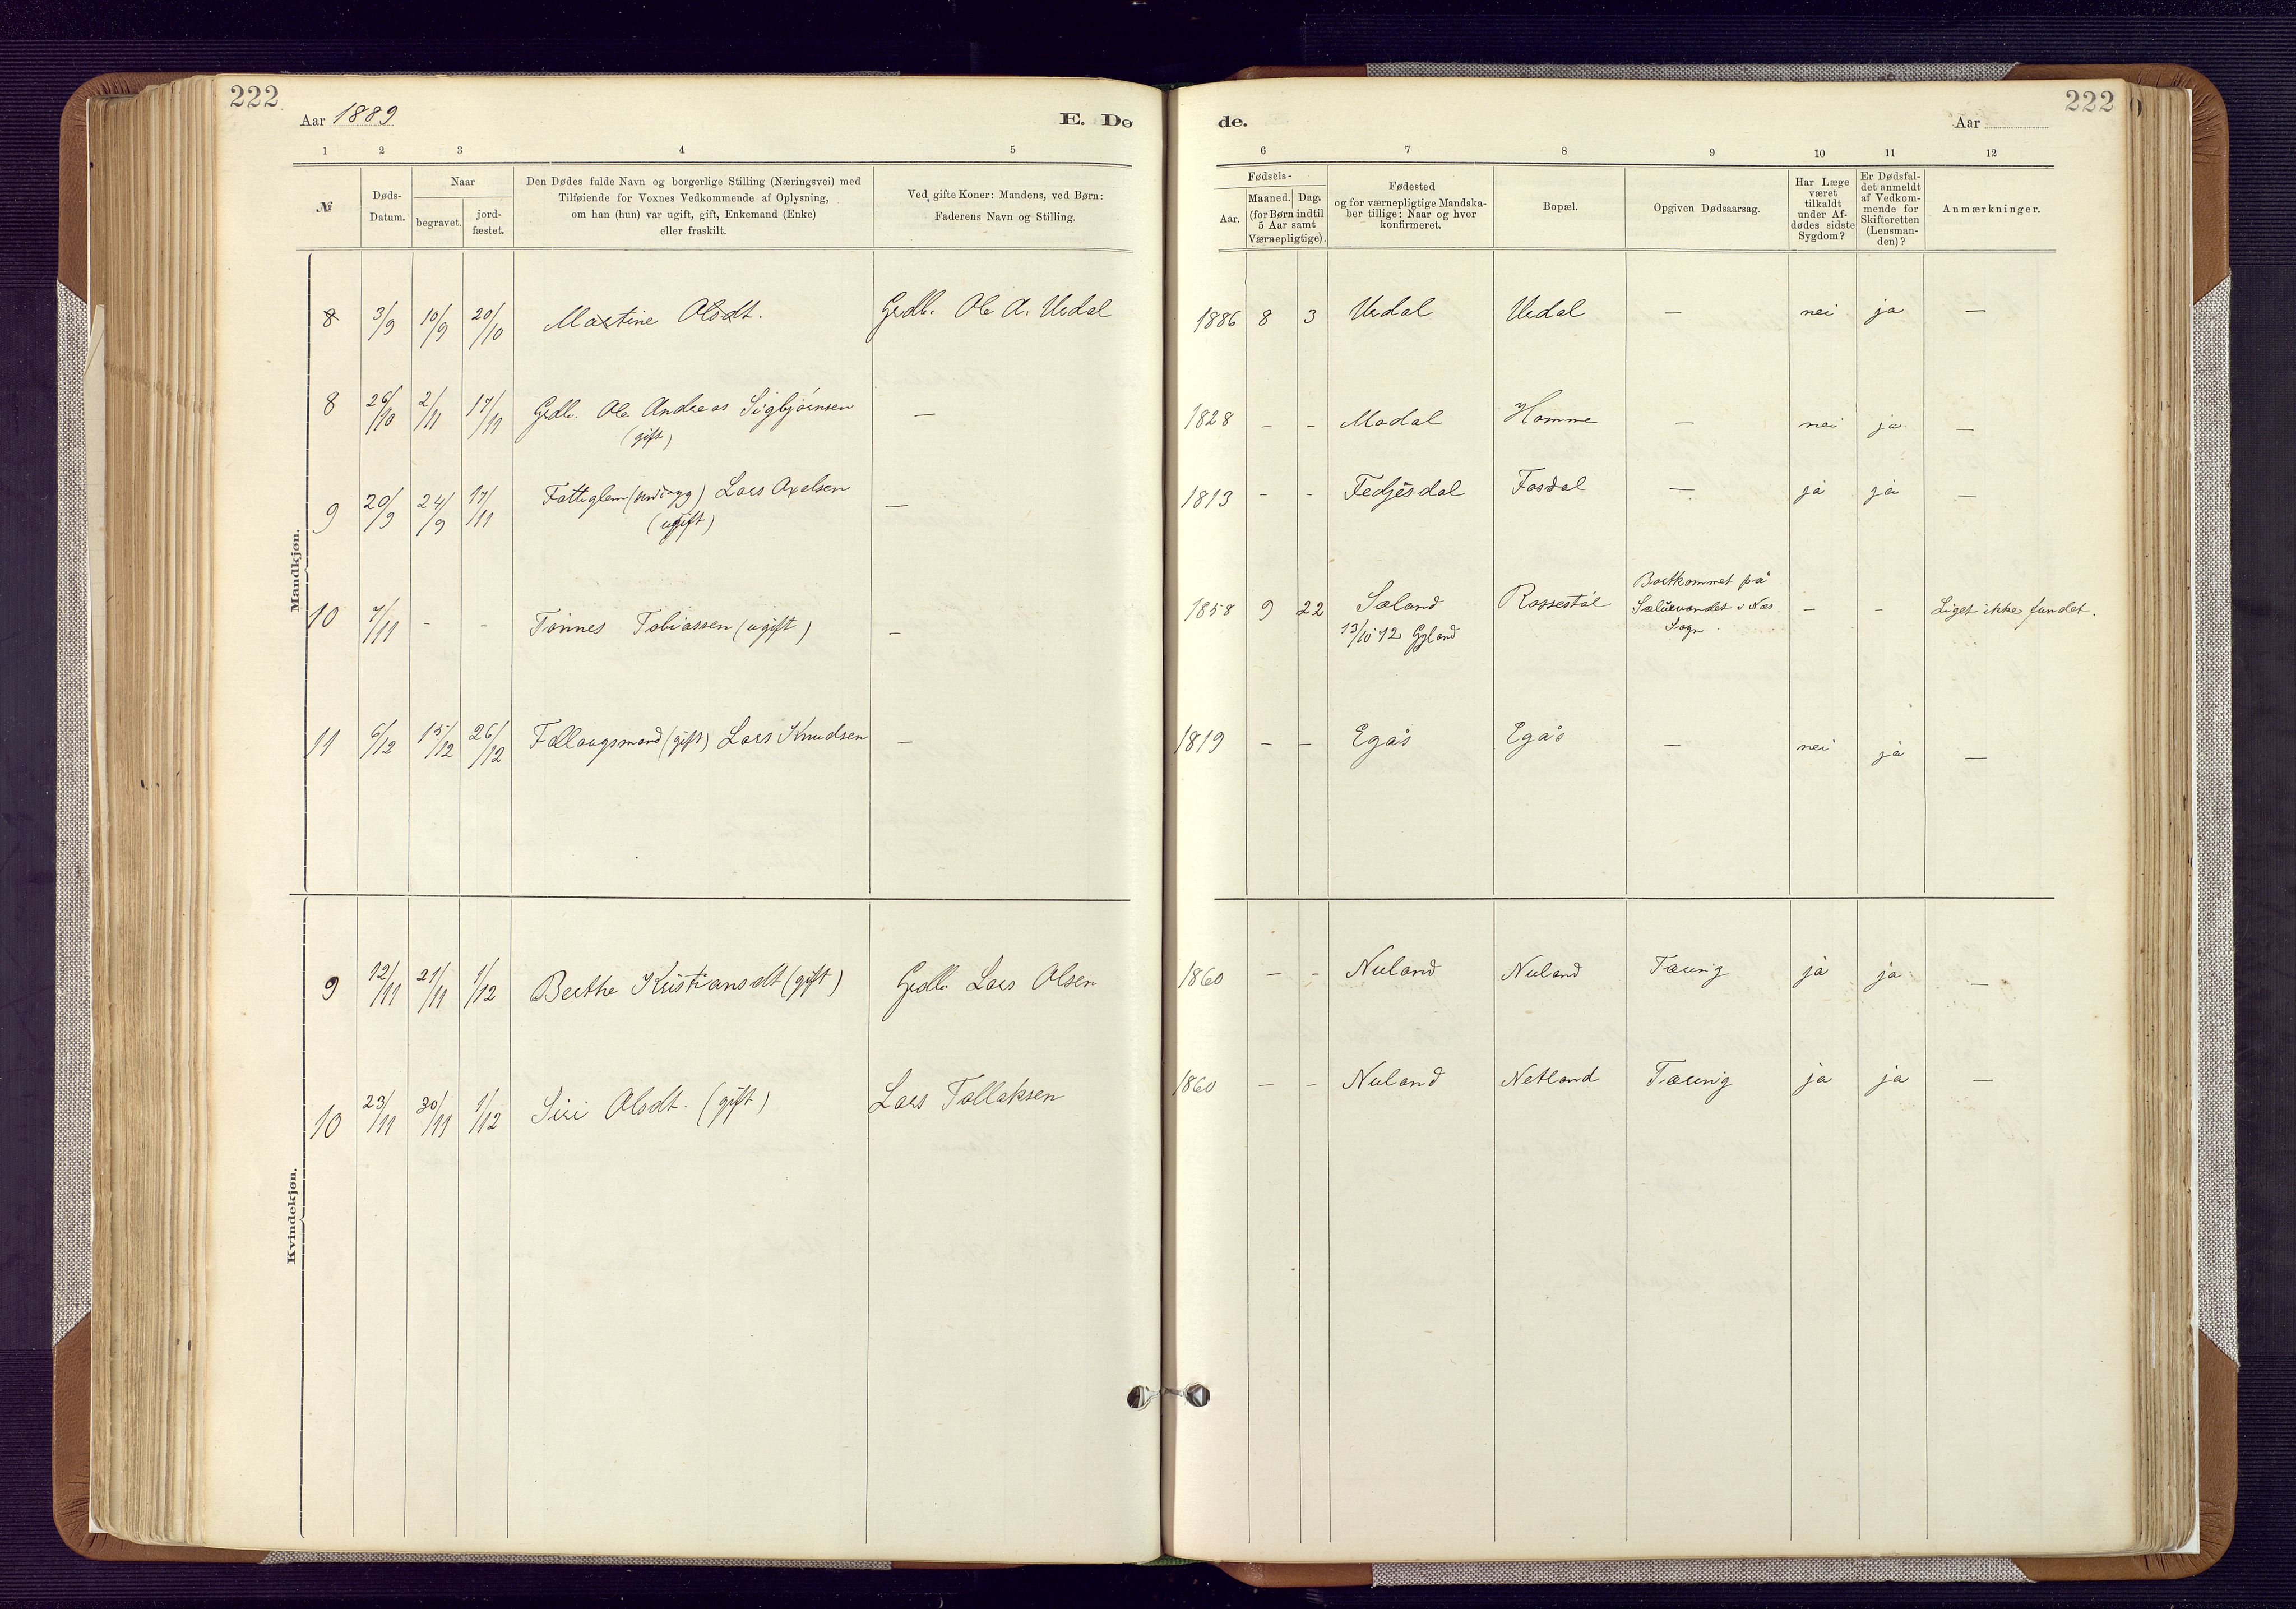 222
Aar 1889
E. Dø
de.
Aar
222
1 2 3 4 5
6 7 8 9 10 11 12
№
Døds-
Datum.
Naar
begravet.
jord-
fæstet.
Den Dødes fulde Navn og borgerlige Stilling (Næringsvei) med
Tilføiende for Voxnes Vedkommende af Oplysning,
om han (hun) var ugift, gift, Enkemand (Enke)
eller fraskilt.
Ved gifte Koner: Mandens, ved Børn:
Faderens Navn og Stilling.
Fødsels-
Aar.
Maaned. Dag.
(for Børn indtil
5 Aar samt
Værnepligtige).
Fødested
og for værnepligtige Mandska-
ber tillige: Naar og hvor
konfirmeret.
Bopæl.
Opgiven Dødsaarsag.
Har Læge
været
tilkaldt
under Af-
dødes sidste
Sygdom?
Er Dødsfal-
det anmeldt
af Vedkom-
mende for
Skifteretten
(Lensman-
den)?
Anmærkninger.
Mandkjøn.
8 3/9 10/9 20/10 Martine Olsdt. Grdb. Ole A. Urdal 1886 8 3 Urdal Urdal — nei ja —
8 26/10 2/11 17/11 Grdb. Ole Andreas Sigbjørnsen — 1828 - - Modal Homme — nei ja —
(gift)
9 20/9 24/9 17/11 Fattiglem Lars Axelsen — 1813 - - Fedjesdal Fosdal — ja ja —
(ugift)
10 7/11 - - Tønnes Tobiassen (ugift) — 1858 9 22 Sæland Rossestøl Bortkommet på - - Liget ikke fundet.
13/10 72 Gyland
i Næs
Sogn.
11 6/12 15/12 26/12 Follaugsmand (gift) Lars Knudsen — 1819 - - Egås Egås — nei ja —
Kvindekjøn.
9 12/11 21/11 1/12 Berthe Kristiansdt (gift) Grdb. Lars Olsen 1860 - - Nuland Nuland Tæring ja ja —
10 23/11 30/11 1/12 Siri Olsdt. (gift) Lars Tollaksen 1860 - - Nuland Netland Tæring ja ja —